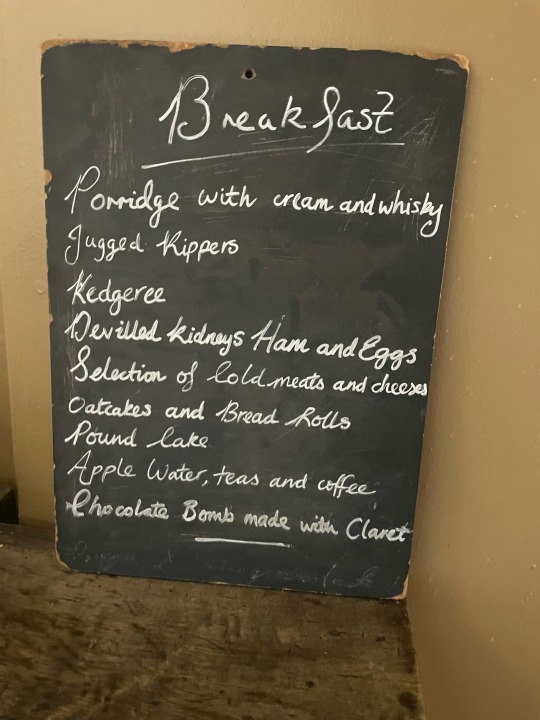 Breakfast
Porridge with cream and whisky
Jugged Kippers
Kedgeree
Devilled kidneys Ham and Eggs
Selection of Cold meats and cheeses
Oatcakes and Bread Rolls
Pound Cake
Apple Water, teas and coffee
Chocolate Bomb made with Claret